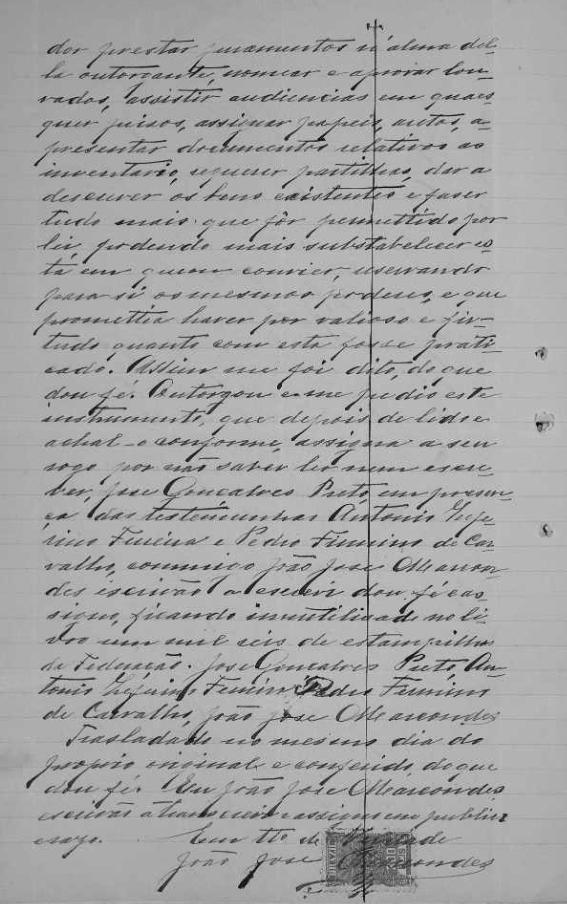 der prestar juramentos n'alma del-
la outorgante, nomear e aprovar lou-
vados, assistir audiencias em quaes
quer juisos, assignar papeis, autos, a-
presentar documentos relativos ao
inventario, requerer partilhas, dar a
descrever os bens existentes e faser
tudo mais que fôr permettido por
lei, podendo mais substabelecer es-
tá em quem convier, reservando
para si os mesmos poderes, e que
promettia haver por valioso e fir-
tudo quanto com esta fosse prati-
cado. Assim me foi dito, do que
dou fé. Outorgou e me pedio este
instrumento, que depois de lido e
achal-o conforme, assigna a seu
rogo por não saber ler nem escre-
ver, Jose Gonçalves Preto, em presen-
ça das testemunhas Antonio Zefe-
rino Ferreira e Pedro Firmino de Car-
valho, commigo João Jose Marcon-
des escrivão a escrevi dou fé e as-
signo, ficando inutilisado no li-
vro um mil reis de estampilhas
da Federação. Jose Gonçalves Preto, An-
tonio Zeferino Ferreira Pedro Firmino
de Carvalho, João Jose Marcondes
Trasladado no mesmo dia do
proprio original e conferido, do que
dou fé. Eu João Jose Marcondes
escrivão a transcrevi e assigno em publico
e raso.
Em tto de verdade
João Jose Marcondes